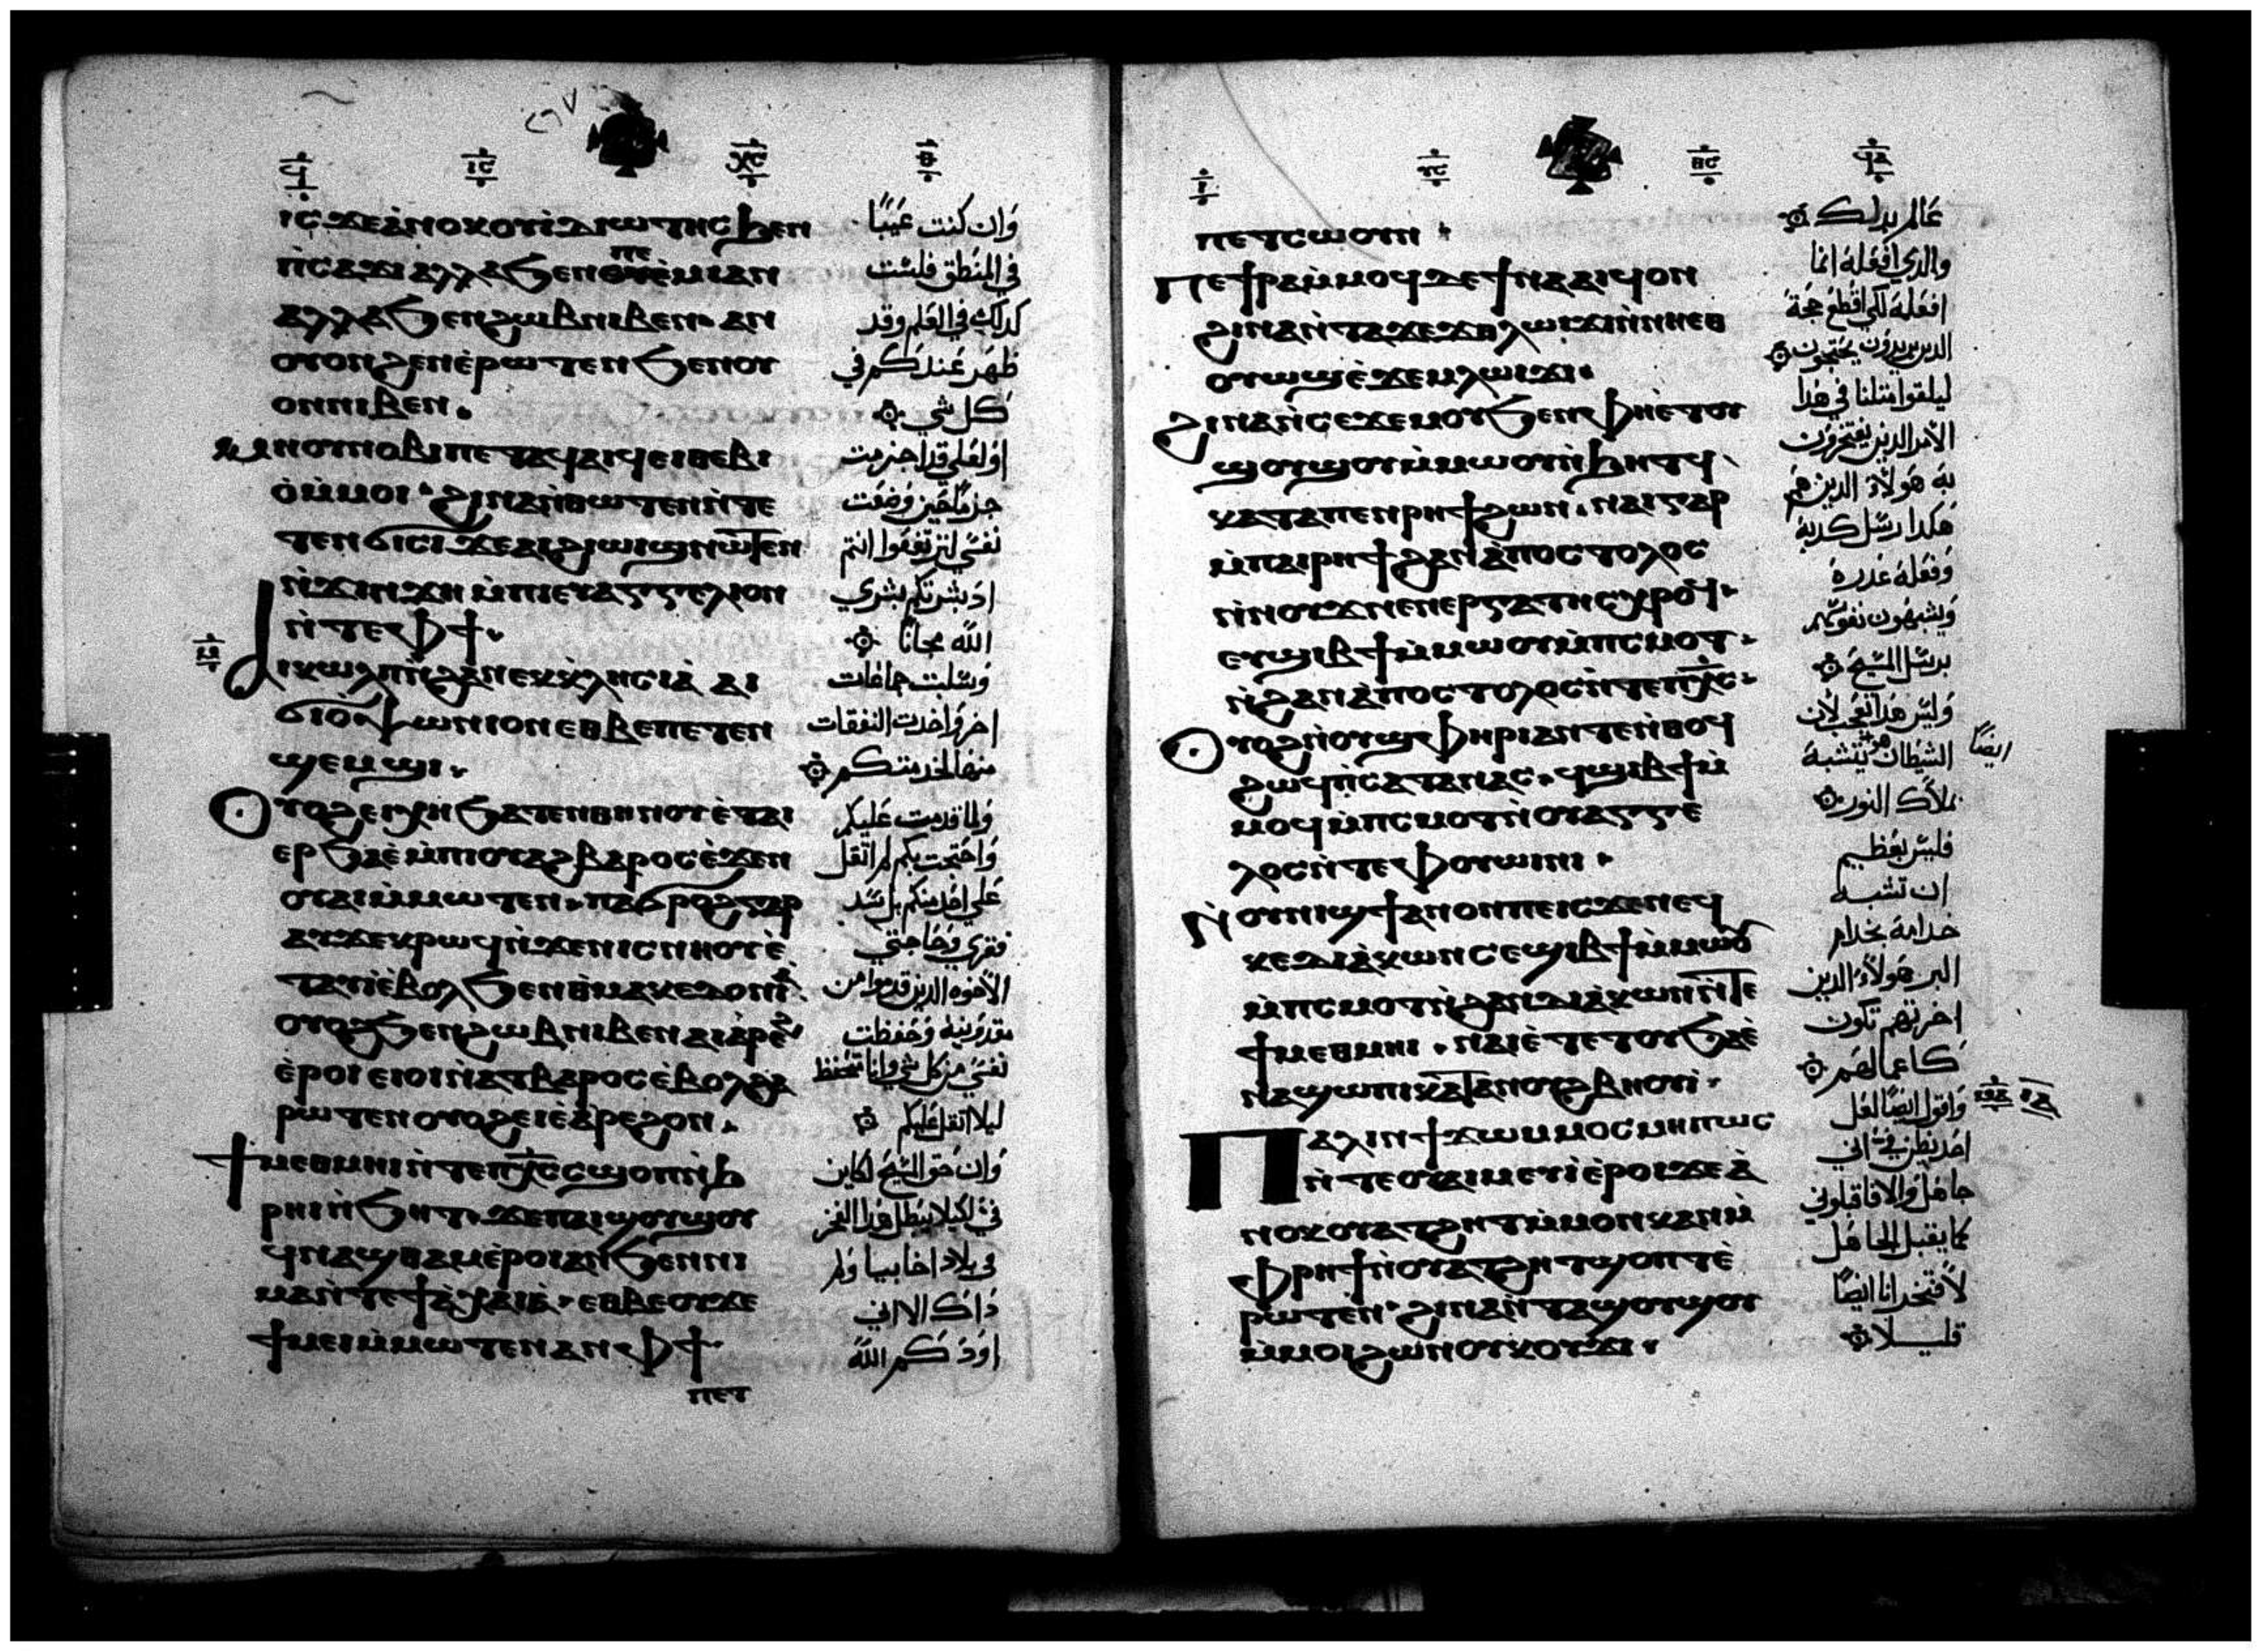 ⲓⲥϫⲉⲁⲛⲟⲕⲟⲩⲓⲇⲓⲱⲧⲏⲥϧⲉⲛ
ⲡⲥⲁϫⲓⲁⲗⲗⲁϧⲉⲛ ⲡⲉⲙⲓⲁⲛ
ⲁⲗⲗⲁϧⲉⲛϩⲱⲃⲛⲓⲃⲉⲛ ⲁⲛ
ⲟⲩⲟⲛϩⲉⲛⲉⲣⲱⲧⲉⲛϧⲉⲛⲟⲩ
ⲟⲛⲛⲓⲃⲉⲛ
ϣⲁⲛⲟⲩⲛⲟⲃⲓⲡⲉⲧⲁϥⲁⲓϥⲉⲓⲑⲉⲃⲓ
ⲟⲙⲙⲟⲓ ϩⲓⲛⲁⲛⲑⲱⲧⲉⲛⲛⲧⲉ
ⲧⲉⲛϭⲓⲥⲓϫⲉⲁⲓϩⲓⲱⲓϣⲛⲱⲧⲉⲛ
ⲛϫⲓⲛϫⲏ ⲙⲡⲓⲉⲩⲁⲅⲅⲉⲗⲓⲟⲛ
ⲛⲧⲉⲫϯ
ⲁⲓⲕⲱⲗⲡⲛϩⲁⲛⲉⲕⲕⲗⲏⲥⲓⲁ ⲁⲓ
ϭⲓⲟⲯⲱⲛⲓⲟⲛⲉⲑⲃⲉⲡⲉⲧⲉⲛ
ϣⲉⲙϣⲓ
ⲟⲩⲟϩⲉⲓⲭⲏϧⲁⲧⲉⲛⲑⲏⲛⲟⲩⲉⲧⲁⲓ
ⲉⲣϧⲁⲉⲙⲡⲓⲟⲩⲁϩⲃⲁⲣⲟⲥⲉϫⲉⲛ
ⲟⲩⲁⲓⲙⲙⲱⲧⲉⲛ ⲡⲁϭⲣⲟϩⲅⲁⲣ
ⲁⲩϫⲉⲕⲣⲱϥⲛϫⲉⲛⲓⲥⲛⲏⲟⲩⲉ
ⲧⲁⲩⲓⲉⲃⲟⲗϧⲉⲛⲑⲙⲁⲕⲉⲇⲟⲛⲓⲁ
ⲟⲩⲟϩϧⲉⲛϩⲱⲃⲛⲓⲃⲉⲛⲁⲓⲁⲣⲉϩ
ⲉⲣⲟⲓⲉⲓⲟⲓⲛⲁⲧⲃⲁⲣⲟⲥⲉⲃⲟⲗϩⲁ
ⲣⲱⲧⲉⲛⲟⲩⲟϩⲉⲓⲉⲁⲣⲉϩⲟⲛ
ϯⲙⲉⲑⲙⲏⲓⲛⲧⲉⲡⲭⲥⲥϣⲟⲡⲛϧ
ⲣⲏⲓⲛϧⲏⲧ ϫⲉⲡⲁⲓϣⲟⲩϣⲟⲩ
ϥⲛⲁϣⲑⲁⲙⲉⲣⲟⲓⲁⲛϧⲉⲛⲛⲓ
ⲙⲁⲛⲧⲉϯⲁⲭⲁⲓⲁ ⲉⲑⲃⲉⲟⲩϫⲉ
ϯⲙⲉⲓⲙⲙⲱⲧⲉⲛⲁⲛⲫϯ
ⲡⲉⲧ
وان كنت عيبًا
في المنطق فلست
كدلك في العلم وقد
ظهر عندكم في
كل شي
او لعلي قد اجترمت
جرمًا حين وضعت
نفسي لترتفعوا انتم
اد بشرتكم بشري
الله مجانًا
وسلبت جماعات
اخر واخدت النفقات
منها لخدمتكم
ولما قدمت عليكم
واحتجت بكم لم اتقل
على احد منكم بل سد
فقري وحاجتي
الاخوه الدين قدموا من
مقدونيه وحفظت
نفسي من كل شي وانا متحفظ
ليلا اتقل عليكم
وان حق المسيح لكاين
في لكيلا يبطل هدا الفخر
في بلاد اخاييا ولم
داك الا اني
اودكم الله
ⲡⲉⲧⲥⲱⲟⲩⲛ
ⲡⲉϯⲣⲁⲙⲙⲟϥⲇⲉϯⲛⲁⲁⲓϥⲟⲛ
ϩⲓⲛⲁⲛⲧⲁϫⲉϫⲑⲗⲱⲓϫⲓⲛⲛⲏⲉⲑ
ⲟⲩⲱϣⲉϫⲉⲙⲗⲱⲓϫⲓ
ϩⲓⲛⲁⲛⲥⲉϫⲉⲙⲟⲩϧⲉⲛⲫⲏⲉⲧⲟⲩ
ϣⲟⲩϣⲟⲩⲙⲙⲱⲟⲩⲛϧⲏⲧϥ
ⲕⲁⲧⲁⲡⲉⲛⲣⲏϯϩⲱⲛ ⲛⲁⲓⲅⲁⲣ
ⲙⲡⲁⲓⲣⲏϯϩⲁⲛⲁⲡⲟⲥⲧⲟⲗⲟⲥ
ⲛⲛⲟⲩϫⲛⲉⲛⲉⲣⲅⲁⲧⲏⲥⲛⲭⲣⲟϥ
ⲉⲩϣⲓⲃϯⲙⲙⲱⲟⲩⲙⲡⲥⲙⲟⲧ
ⲛϩⲁⲛⲁⲡⲟⲥⲧⲟⲗⲟⲥⲛⲧⲉⲡⲭⲥ
ⲟⲩⲟϩⲛⲟⲩϣⲫⲏⲣⲓⲁⲛⲧⲉⲛⲑⲟϥ
ϩⲱϥⲡⲥⲁⲧⲁⲛⲁⲥ ϥϣⲓⲃϯⲙ
ⲙⲟϥⲙⲡⲥⲙⲟⲧⲛⲟⲩⲁⲅⲅⲉ
ⲗⲟⲥⲛⲧⲉⲫⲟⲩⲱⲓⲛⲓ
ⲛⲟⲩⲛⲓϣϯⲁⲛⲟⲛⲡⲉⲓⲥϫⲉⲛⲉϥ
ⲕⲉⲇⲓⲁⲕⲱⲛⲥⲉϣⲓⲃϯⲙⲙⲱⲟⲩ
ⲙⲡⲥⲙⲟⲧⲛϩⲁⲛⲇⲓⲁⲕⲱⲛⲛⲧⲉ
ϯⲙⲉⲑⲙⲏⲓ ⲛⲁⲓⲉⲧⲉⲧⲟⲩϧⲁⲉ
ⲛⲁϣⲱⲡⲓⲕⲁⲧⲁⲛⲟⲩϩⲃⲏⲟⲩⲓ
ⲡⲁⲗⲓⲛϯϫⲱⲙⲙⲟⲥⲙⲏⲡⲱⲥ
ⲛⲧⲉⲟⲩⲁⲓⲙⲉⲩⲓⲉⲣⲟⲓϫⲉⲁ
ⲛⲟⲕⲟⲩⲁⲧϩⲏⲧⲙⲙⲟⲛⲕⲁⲛⲙ
ⲫⲣⲏϯⲛⲟⲩⲁⲧϩⲏⲧϣⲟⲡⲧⲉ
ⲣⲱⲧⲉⲛ ϩⲓⲛⲁⲛⲧⲁϣⲟⲩϣⲟⲩ
ⲙⲙⲟⲓϩⲱⲛⲟⲩⲕⲟⲩϫⲓ
عالم بدلك
والدي افعله انما
افعله لكي اقطع حجة
الدين يريدون يحتجون
ليلقوا متلنا في هدا
الامر الدين يفتخرون
به هولاء الدين هم
هكدا رسل كدبه
وفعله غدره
ويشبهون نفوسهم
برسل المسيح
وليس هدا بعجب لان
الشيطان هو يتشبه
ايضًا
بملاك النور
فليس بعظيم
ان تشبه
خدامه بخدام
البر هولاء الدين
اخرتهم تكون
كاعمالهم
واقول ايضًا لعل
احد يظن في اني
جاهل والا فاقبلوني
كما يقبل الجاهل
لافتخر انا ايضًا
قليلا